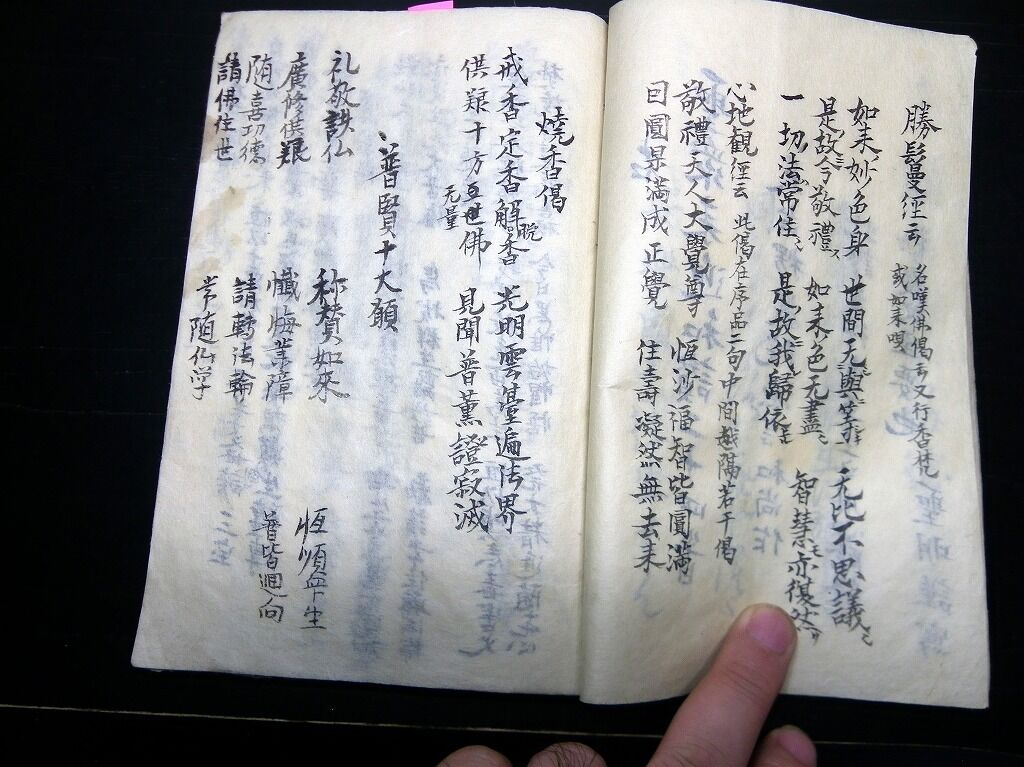 勝鬘経云 名嘆佛偈云又行香梵 或如来唄
如来妙色身 世間无與等 无比不思議
是故今敬禮 如来色无盡 智慧亦復然
一切法常住 是故我歸依
心地観経云 此偈在序品二句中間越隔若干偈
敬禮天人大覺尊 恒沙福智皆圓滿
因圓果満成正覺 住壽凝然無去来
燒香偈
戒香定香解脱香 光明雲臺遍法界
供養十方无量佛 見聞普薫證寂滅
普賢十大願
礼敬諸仏 称賛如來
廣修供養 懺悔業障
随喜功德 請轉法輪
請佛住世 常随仏学
恒順卆生 普皆迴向